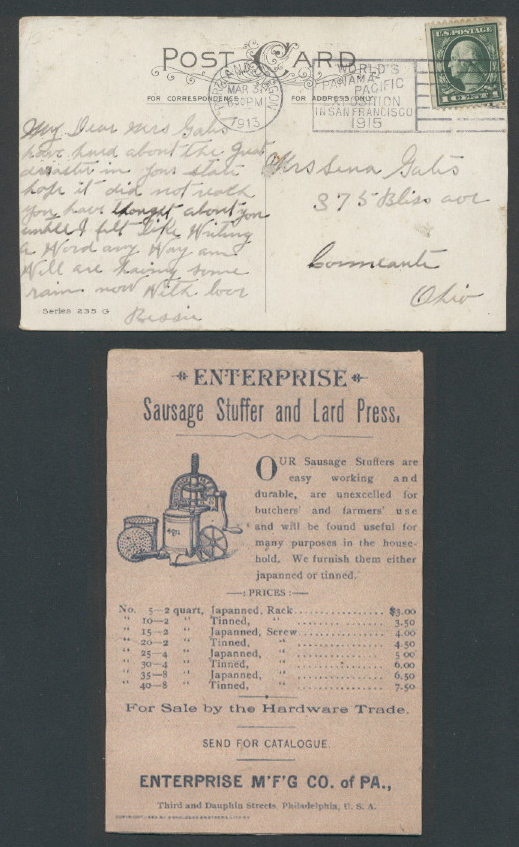 POST CARD
FOR CORRESPONDENCE
FOR ADDRESS ONLY
PORTLAND, OREGON
MAR 31
PM
1913
WORLD'S
PANAMA-
PACIFIC
EXPOSITION
IN SAN FRANCISCO
1915
U.S. POSTAGE
1 CENT 1
My Dear Mrs Gates
have heard about the great
disaster in your state
hope it did not reach
you, have thought about you
untill I felt like Writing
a Word any Way am
Will are having some
rain now With love
Bessie
Series 235 G
Mrs Lena Gates
375 Bliss ave
Conneaut
Ohio
ENTERPRISE
Sausage Stuffer and Lard Press.
OUR Sausage Stuffers are
easy working and
durable, are unexcelled for
butchers' and farmers' use
and will be found useful for
many purposes in the house-
hold. We furnish them either
japanned or tinned.
—: PRICES :—
No. 5—2 quart, Japanned, Rack .................. $3.00
" 10—2 " Tinned, " .................. 3.50
" 15—2 " Japanned, Screw .................. 4.00
" 20—2 " Tinned, " .................. 4.50
" 25—4 " Japanned, " .................. 5 00
" 30—4 " Tinned, " .................. 6.00
" 35—8 " Japanned, " .................. 6.50
" 40—8 " Tinned, " .................. 7.50
For Sale by the Hardware Trade.
SEND FOR CATALOGUE.
ENTERPRISE M'F'G CO. of PA.,
Third and Dauphin Streets, Philadelphia, U. S. A.